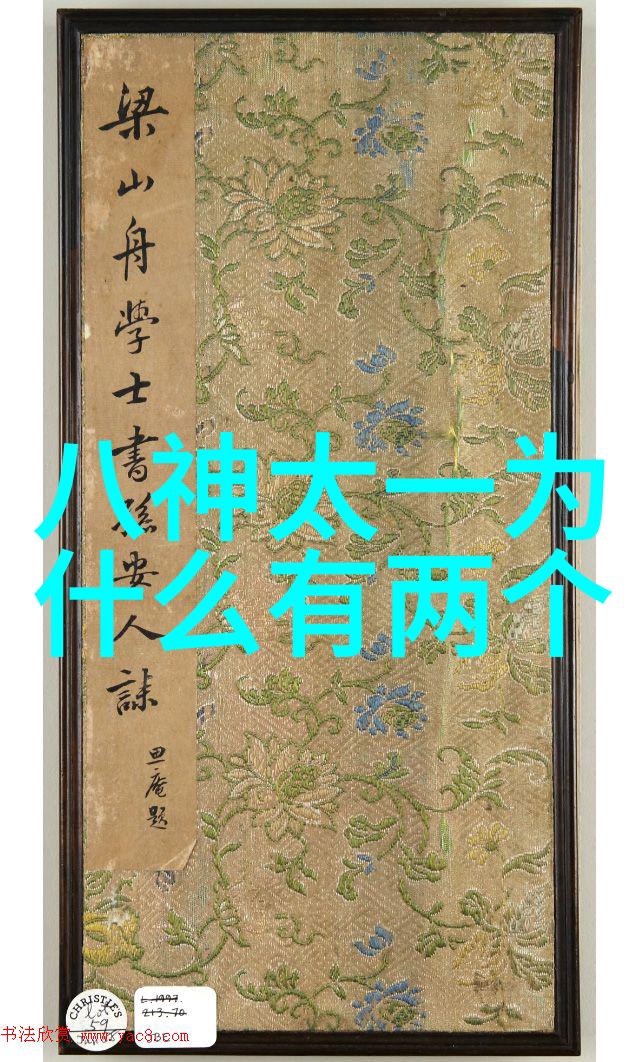 八神太一为
什么有两个
梁山舟學士書孫安人誄
思庵題
CHRISTIE'S
lot
59
L.1997.
213.70
书法欣赏 www.yac8.com